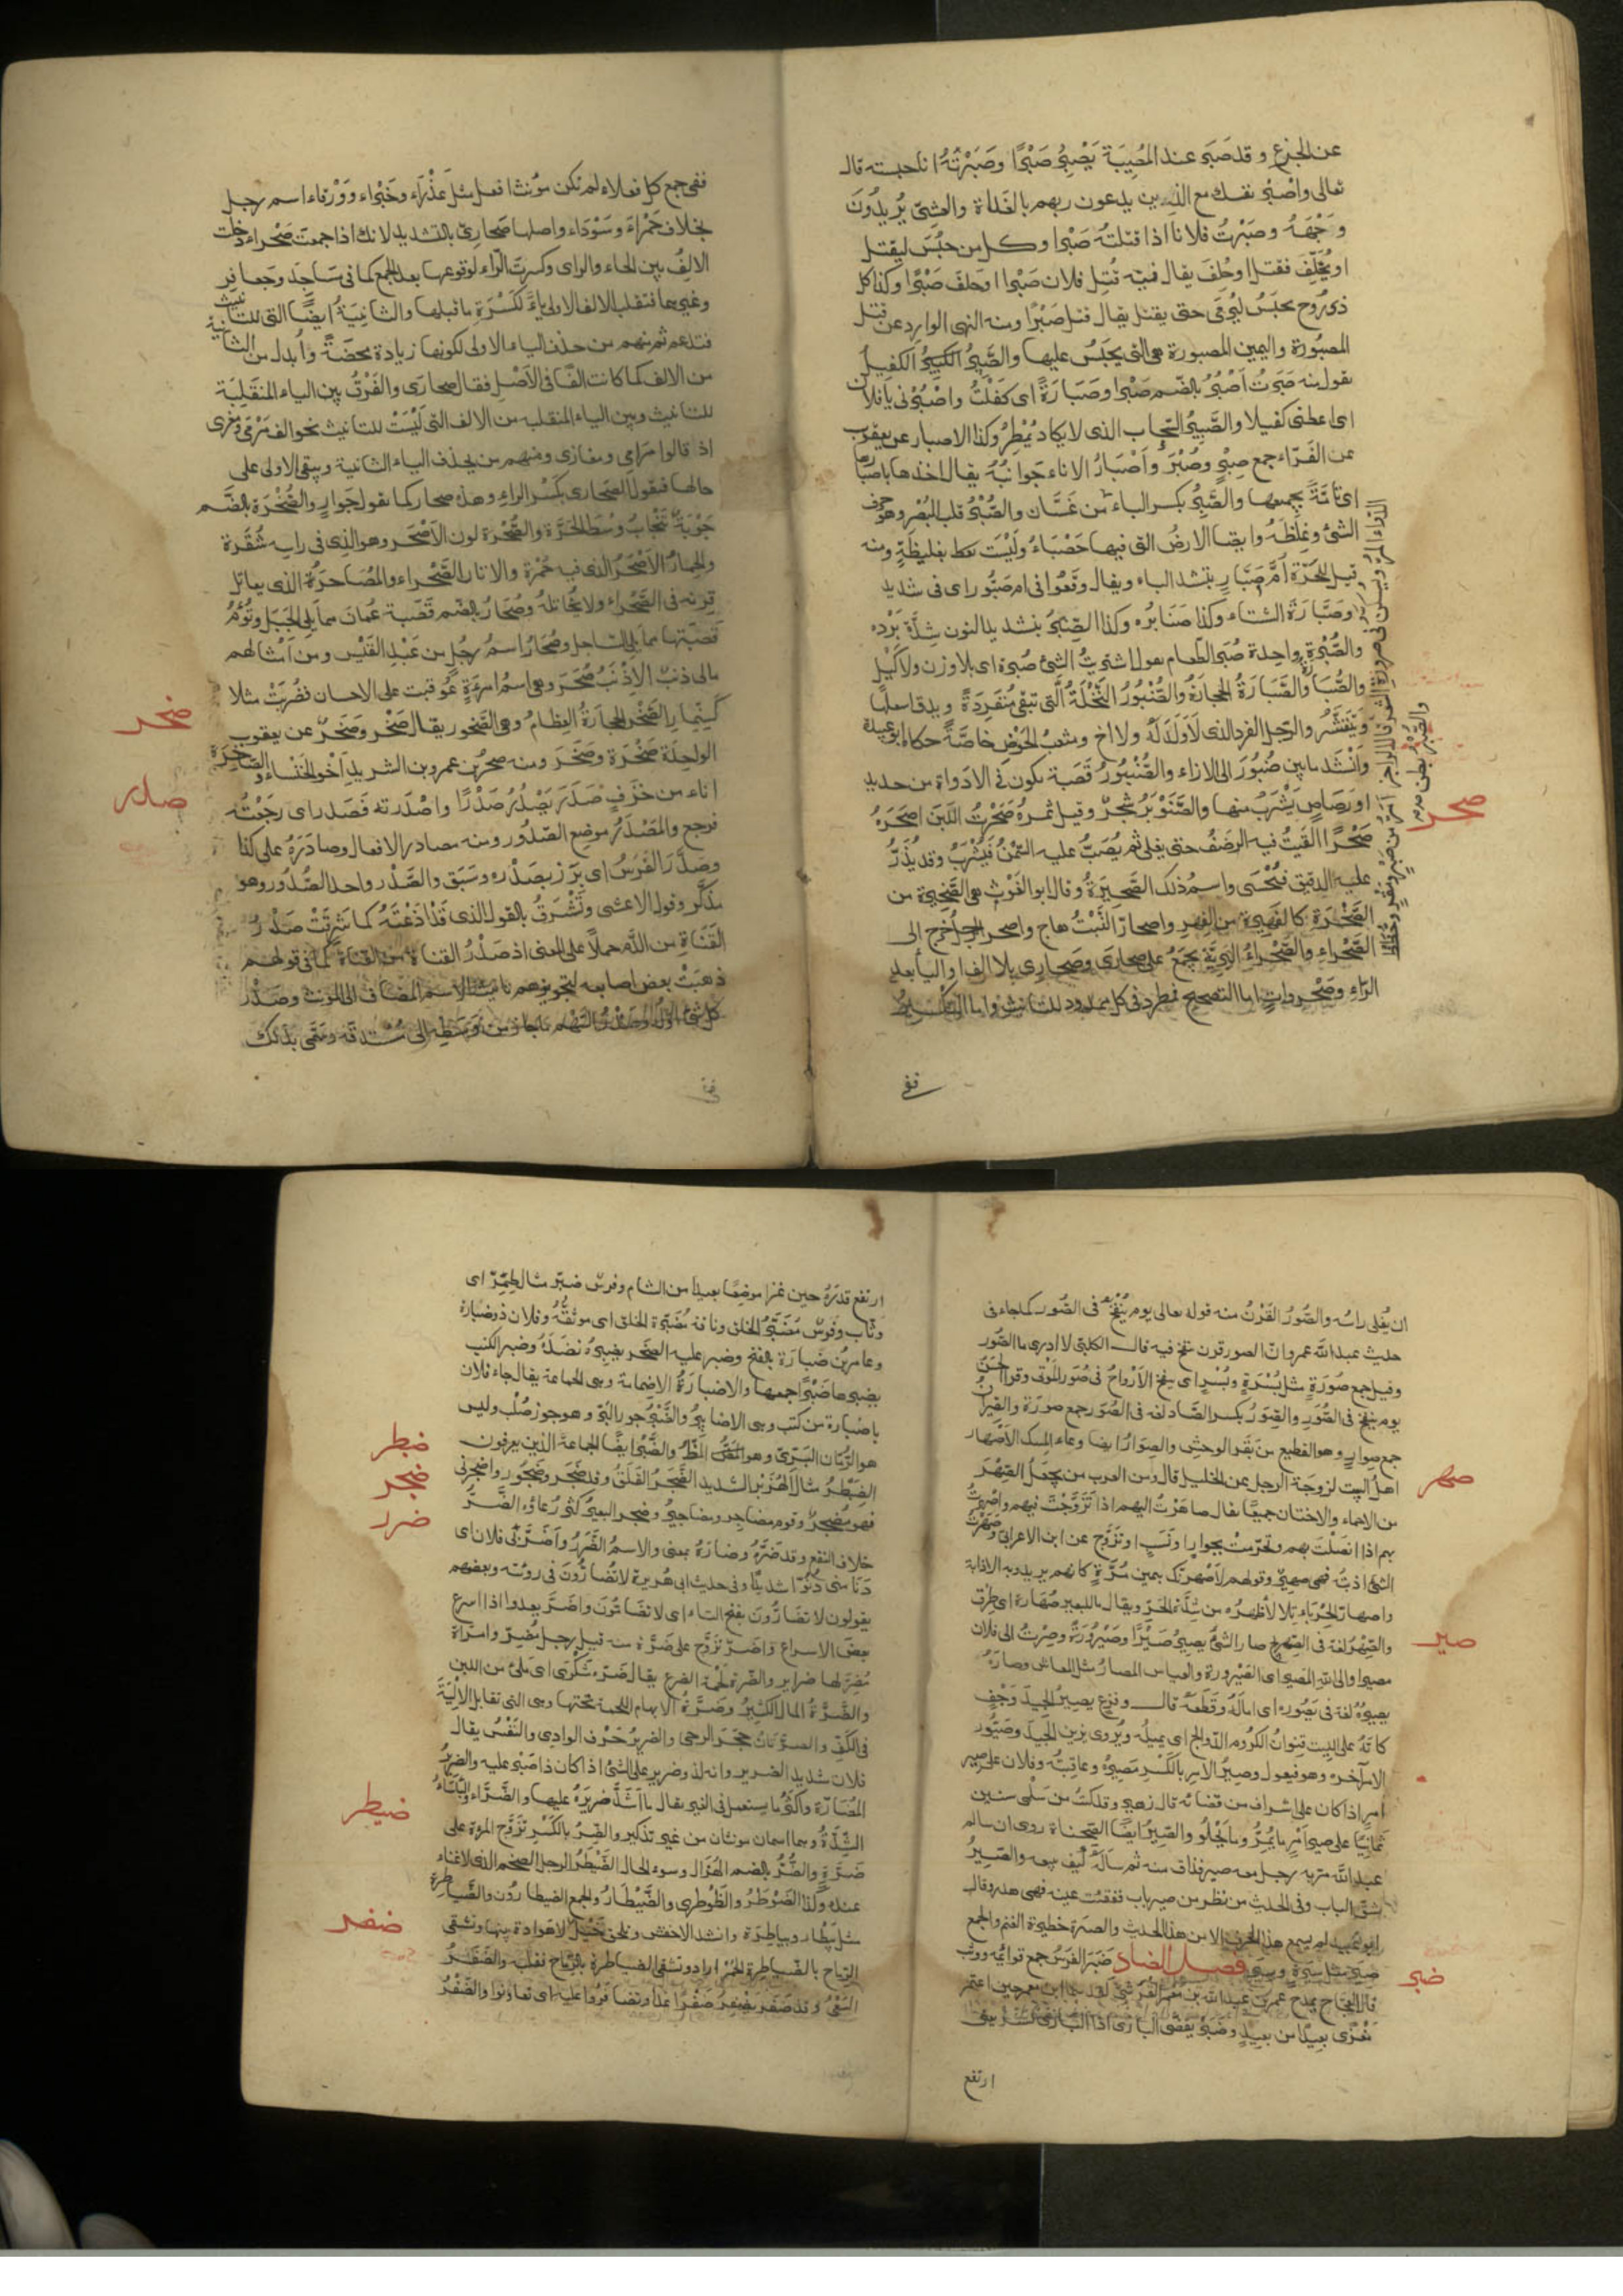 عن الجزع وقد صبر عند المصيبة يَصْبِرُ صَبْرًا وصَبَرْتُهُ انا حبسته قال
تعالى واصْبِرْ نفسك مع الذين يدعون ربهم بالغداة والعشي يُرِيدُونَ
وَجْهَهُ وصَبَرْتُ فلانا اذا قتلتُه صَبْرا وكل من حُبِسَ ليقتل
او يُحَلَّف فقتل او حُلِف يقال فيه قُتِل فلان صَبْرا او حَلَفَ صَبْرًا وكذا كل
ذى رُوح يحبَسُ ليُرمَى حتى يقتل يقال قتل صَبْرًا ومنه النهى الوارد عن قتل
المصبُورَة واليمين المصبورة هى التى يحبَسُ عليها والصَّبِيرُ الكَفِيلُ
نقول منه صَبَرتُ اَصْبُرُ بالضّم صَبْرا وصَبَارَةً اى كَفَلْتُ واصْبُرْنى يا فلان
اى اعطنى كفيلا والصَّبِيرُ السَّحاب الذى لا يكاد يُمْطِرُ وكذا الاصبار عن يعقوب
عن الفَرّاء جمع صِبْرٍ وصُبْرٍ وأَصْبَارُ الاناء جَوانبُهُ يقال اخذها باصبارها
اى تامَّةً بجميعها والصَّبِرُ بكسر الباء من غَسَّان والصُّبْرُ قلب البُصْر وهو حرف
الشئ وغِلظَهُ وايضا الارضُ التى فيها حَصْبَاءُ ولَيْسَت بغليظَةٍ ومنه
قيل للحَرّة أُمُّ صَبَّارٍ بتشديد الباء ويقال وقَعُوا فى ام صَبُّور اى فى شديد
وصَبَارَة الشتاء وكذا صَنَابره وكذا الصِنَّبْرُ بتشديد النون شِدَّة بَرْده
والصُّبْرة واحِدة صُبَر الطعام تقول اشتريتُ الشئ صُبْرة اى بلا وزن ولا كَيْل
والصُّبَارَةُ الحجارَةُ والصُّنْبُورُ النَّخْلَةُ الَّتى تبقى مُنْفَرِدَةً ويدق اسفلها
ويَتَقَشَّرُ والرّجل الفرد الذى لا وَلَدَ لَهُ ولا اخ ومثعبُ الحَوْض خاصَّةً حكاه ابو عبيدة
وانْشَد ما بين صُنْبُورَ الى الازاء والصُّنْبُورُ قَصَبة تكون فى الادواة من حديد
او رَصَاصٍ يُشْرَبُ منها والصَّنَوْبَرُ شَجَرٌ وقيل ثمرهُ صَحَرْتُ اللَّبَنَ اصْحَرُهُ
صَحْرًا القَيْتُ فيه الرضْفُ حتى يغلى ثم يُصَبُّ عليه السَّمْنُ فَيُشْرَبُ وقد يُذَرُّ
عليه الدقيق فيُحْسَى واسمُ ذلك الصَّحِيرَةُ وقال ابو الغَوْث هى الصَّحِيرة من
الصَّحْرَةِ كالفَهِيرة من الفِهرِ واصحارّ النَّبْتُ هاج واصحر الرجلُ خَرج الى
الصَّحْراءِ والصَّحْراءُ البَرِيَّة يجمع على صحارَى وصَحارِى بلا الف او اليا بعد
الرّاءِ وصَحْراواتٍ اما التصحيح فمطرد فى كل ممدود للتانيث واما التكسير
ففى
صحر
ففى جمع كل فعلاء لم تكن مؤنثا افعل مثل عَذْراء وخَبْراء ووَرْقاء اسم رجل
بخلاف حَمْراءَ وسَوْدَاء واصلها صَحارِىّ بالتشديد لانك اذا جمعتَ صَحْراء دخلت
الالفُ بين الحاء والراى وكسرتَ الرّاء لوقوعها بعد الجمع كما فى مَساجِدَ وجَعافِر
وغيرهما فتقلب الالف الاولى ياءً لكَسْرَةِ ما قبلها والثانيةُ ايضًا التى للتانيث
فتدغم ثم منهم من حذف الياء الاولى لكونها زيادة محضَةً وأبدل من الثانية
من الالف كما كانت الفًا فى الاَصْلِ فقال صحارَى والفَرْقُ بين الياء المنقَلِبَة
للتانيث وبين الياء المنقلبه من الالف التى لَيْسَت للتانيث نحو الف مَرْمى ومَغْزى
اذ قالوا مَرامى ومغازى ومنهم من يحذف الياء الثانية ويبقى الاولى على
حالها فيقول الصحارى بكَسْر الراءِ وهذه صحار كما تقول جَوارٍ والصُّحْرَة بالضَّم
جَوْبَة تَنْجابُ وسَط الحَرَّة والصُّحْرَة لون الاَصْحَر وهو الذى فى راسه شُقْرة
والحِمارُ الاَصْحَرُ الذى فيه حُمْرَة والاتان الصَّحْراء والمُصَاحِرُ الذى يقاتل
قِرنه فى الصَّحْراء ولا يُخاتله وصُحَارُ بالضّم قَصَبة عُمَان مما يلى الجَبَل وتُؤَمُ
قَصَبَتها مما يلى السّاحِل وصُحَارُ اسم رَجُلٍ من عَبْد القَيْس ومن اَمْثالهم
مالى ذنْبٌ الا ذنْبُ صُحَرَ وهى اسمُ امرءةٍ عُوقبت على الاحسان فضُرِبَتْ مثلا
كَسِنِّمار الصَّخْر الحجارَةُ العِظامُ وهى الصُّخور يقال صَخْر وصَخَر عن يعقوب
الواحِدَة صَخْرَة وصَخَرَة ومنه صخرُ بن عمرو بن الشريد اَخُو الخَنْساء والصّاخِرَة
اناء من خَزَفٍ صَدَرَ يَصْدُرُ صَدْرًا واصْدَرته فَصَدَر اى رجَعْتُه
فرجع والمَصْدَرُ موضِع الصّدُور ومنه مصادر الافعال وصادَرَهُ على كذا
وصَدَّر الفَرَسُ اى بَرَز بِصَدْره وسَبَق والصَّدْر واحد الصُّدُور وهو
مذكَّر وقول الاعشى وتَشْرَقُ بالقول الذى قَدْ اذَعْتَهُ كما شَرِقَتْ صَدْرُ
القَناةِ من الدَّم حملاً على المعنى اذ صَدْرُ القناة من القناة كما فى قولهم
ذهبَتْ بعض اصابعه لتجويزهم تانيث الاسم المضاف الى المؤنث وصَدْر
كل شئ اوّلهُ وصَدْرُ السَّهْم ما جاز من وَسَطِه الى مُسْتدقّه وسمّى بذلك
صخر
صدر
ان يُغلى راسُه والصُّورُ القَرْنُ منه قوله تعالى يوم يُنْفَخُ فى الصُّور كما جاء فى
حديث عبد اللّه عمرو انّ الصور قرن ينفخ فيه قال الكلبى لا ادرى ما الصُّور
وقيل جمع صُورَةٍ مثل بُسْرَةٍ وبُسْرٍ اى ينفخ الاَرْواحُ فى صُوَر المَوْتى وقرا الحسنُ
يوم ينفخ فى الصُّوَرِ والصِوَرُ بكسر الصّاد لغة فى الصُّوَر جمع صورَة والصِيرانُ
جمع صِوارٍ وهو القطيع من بَقَر الوحش والصِوارُ ايضا وعاء المِسك الاَصْهار
اهل البيت لزوجَة الرجل عن الخليل قال ومن العرب من يجعل الصِهْر
من الاحماء والاختان جميعًا يقال صاهَرْتُ اليهم اذا تَزَوَّجْتَ فيهم واَصْهَرْتُ
بهم اذا اتصَلْتَ بهم وتحرّمتَ بجوارٍ او نَسَبٍ او تزَوَّج عن ابن الاعرابى وصَهَرْتُ
الشئ اذبتُه فهو صهِيرٌ وقولهم لاَصْهَرَنّك بيمين مُرَّةٍ كانهم يريدون به الاذابة
واصهارّ الحِرْباءُ تلالا ظهرُه من شِدّة الحَرّ ويقال ما للبعير صُهَارة اى طِرْق
والصِّهْرُ لغة فى الصِّهْرِيج صار الشئُ يصيرُ صَيْرًا وصَيْرُورَةً وصِرْتُ الى فلان
مصيرا والى الله المصير اى الصَيْرورة والقياس المصارُ مثل المعاش وصارَهُ
يصيرُهُ لغة فى يَصُوره اى امالَهُ وقَطَعَهُ قال وفرعٍ يصيرُ الجيدَ وَحْفٍ
كانّهُ على الليت قِنوانُ الكُروم الدَّوالح اى يميلُه ويُروى يزين الجيدَ وصَيُّور
الامر آخره وهو فيعول وصِيرُ الامر بالكَسْر مَصِيرُهُ وعاقبتُه وفلان على صِيرِ
امرٍ اذا كان على اِشراف من قضائه قال زهير وقد كنتُ من سَلْمى سنين
ثمانيًا على صيرِ اَمْرٍ ما يَمُرُّ وما يَحْلُو والصِيرُ ايضًا الصِّحْناة روى ان سالم
عبد اللّه مرّ به رجل معه صِير فذاق منه ثم سأله كَيف تبيعه والصِّيرُ
شقّ الباب وفى الحديث من نظر من صير باب ففقئت عينه فهى هدر وقال
ابو عبيد لم يسمع هذا الحرف الا من هذا الحديث والصيرة حظيرة الغنم والجمع
صِيَر مثل سِيرَة وسِيَر فصل الضاد ضَبَرَ الفرسُ جمع قوائمه ووثب
قال العجّاج يمدح عمر بن عبيد اللّه بن معمر القُرَشىّ لقد سما ابن معمر حين اعتمر
مَغْزًى بعيدًا من بعيدٍ وضَبَرْ
ارتفع
صهر
صير
ضبر
ارتفع قدرُهُ حين غزا موضِعًا بعيدا من الشام وفرس ضِبِرّ مثال طِمِرّ اى
وثّاب وفَرس مُضَبَّرُ الخلق وناقة مُضَبَّرَة الخلق اى موثَّقُه وفلان ذو ضبارة
وعامر بن ضَبارَة بالفتح وضبر عليه الصَخر يضبِرُهُ نضَّدَهُ وضبر الكتب
يضبرها ضَبْرًا جمعها والاضبارَةُ الاضمامة وهى الجماعة يقال جاء فلان
باضبارة من كتب وهى الاضابيرُ والضَّبْرُ جوز البَرّ وهو جوز صُلْب وليس
هو الرُّمّان البَرِّىّ وهو المَظُّ والضَّبْرُ ايضًا الجماعة الذين يغزون
الضِّبَطْرُ مثال الهِزَبْر الشديد الضَّجَرُ القَلَقُ وقد ضَجَر وضَجُور واضجرنى
فهو مُضْجِرٌ وقوم مضاجِر ومضاجيرُ وضجر البعيرُ كثُر رُغاؤُه الضَّرُّ
خلاف النفع وقد ضَرَّهُ وضارَّهُ بمعنى والاسمُ الضَّرَرُ واَضَرَّ بى فلان اى
دَنَا منى دُنُوّا شديدًا وفى حديث ابى هُريرة لا تُضارُّونَ فى رؤيته وبعضهم
يقولون لا تَضارُّونَ بفتح التاء اى لا تَضامُّونَ واضَرَّ يعدوا اذا اسرع
بعضَ الاسراع واضَرّ تزَوَّج على ضَرَّة منه قيل رجل مُضِرّ وامرأة
مُضِرّ لها ضراير والضَّرة لَحْمَة الضَرع يقال ضَرَّة شَكْرَى اى ملئ من اللبن
والضَّرَّةُ المال الكثيرُ وضَرَّةُ الابهام اللحمة تحتها وهى التى تقابل الاَلْيَةَ
فى الكَفّ والضرّتان حجَرَ الرحى والضريرُ حَرْف الوادِى والنَفْسُ يقال
فلان شديد الضرير وانه لذو ضرير على الشئ اذا كان ذا صَبْر عليه والضريرُ
المُضارَّة واكثرُ ما يستعمل فى الغيرة يقال ما اَشَدَّ ضريرَهُ عليها والضَّرّاء والبَأساءُ
الشِّدَّةُ وهما اسمان مونثان من غير تذكير والضِّرُّ بالكَسْرِ تَزَوّج المرءة على
ضَرَّة والضُّرُّ بالضم الهُزال وسوء الحال الضَّيْطَرُ الرجل الضخم الذى لا غناء
عنده وكذا الضَوْطَرُ والضَّوْطرى والضَّيْطَارُ والجمع الضيطارُون والضَّياطِرة
مثل بَيْطار وبياطِرَة وانشد الاخفش وتلحق خَيْل لا هَوادة بينها وتشقى
الرّماح بالضَّياطِرة الحُمْر اراد وتشقى الضياطرة بالرِّماح فقلب والضَفْرُ
السَعْىُ وقد ضَفَر يضْفِرُ ضَفْرًا عَدا وتضافَرُوا عليه اى تعاوَنوا والضَّفْرُ
ضبطر
ضجر
ضرر
ضيطر
ضفر